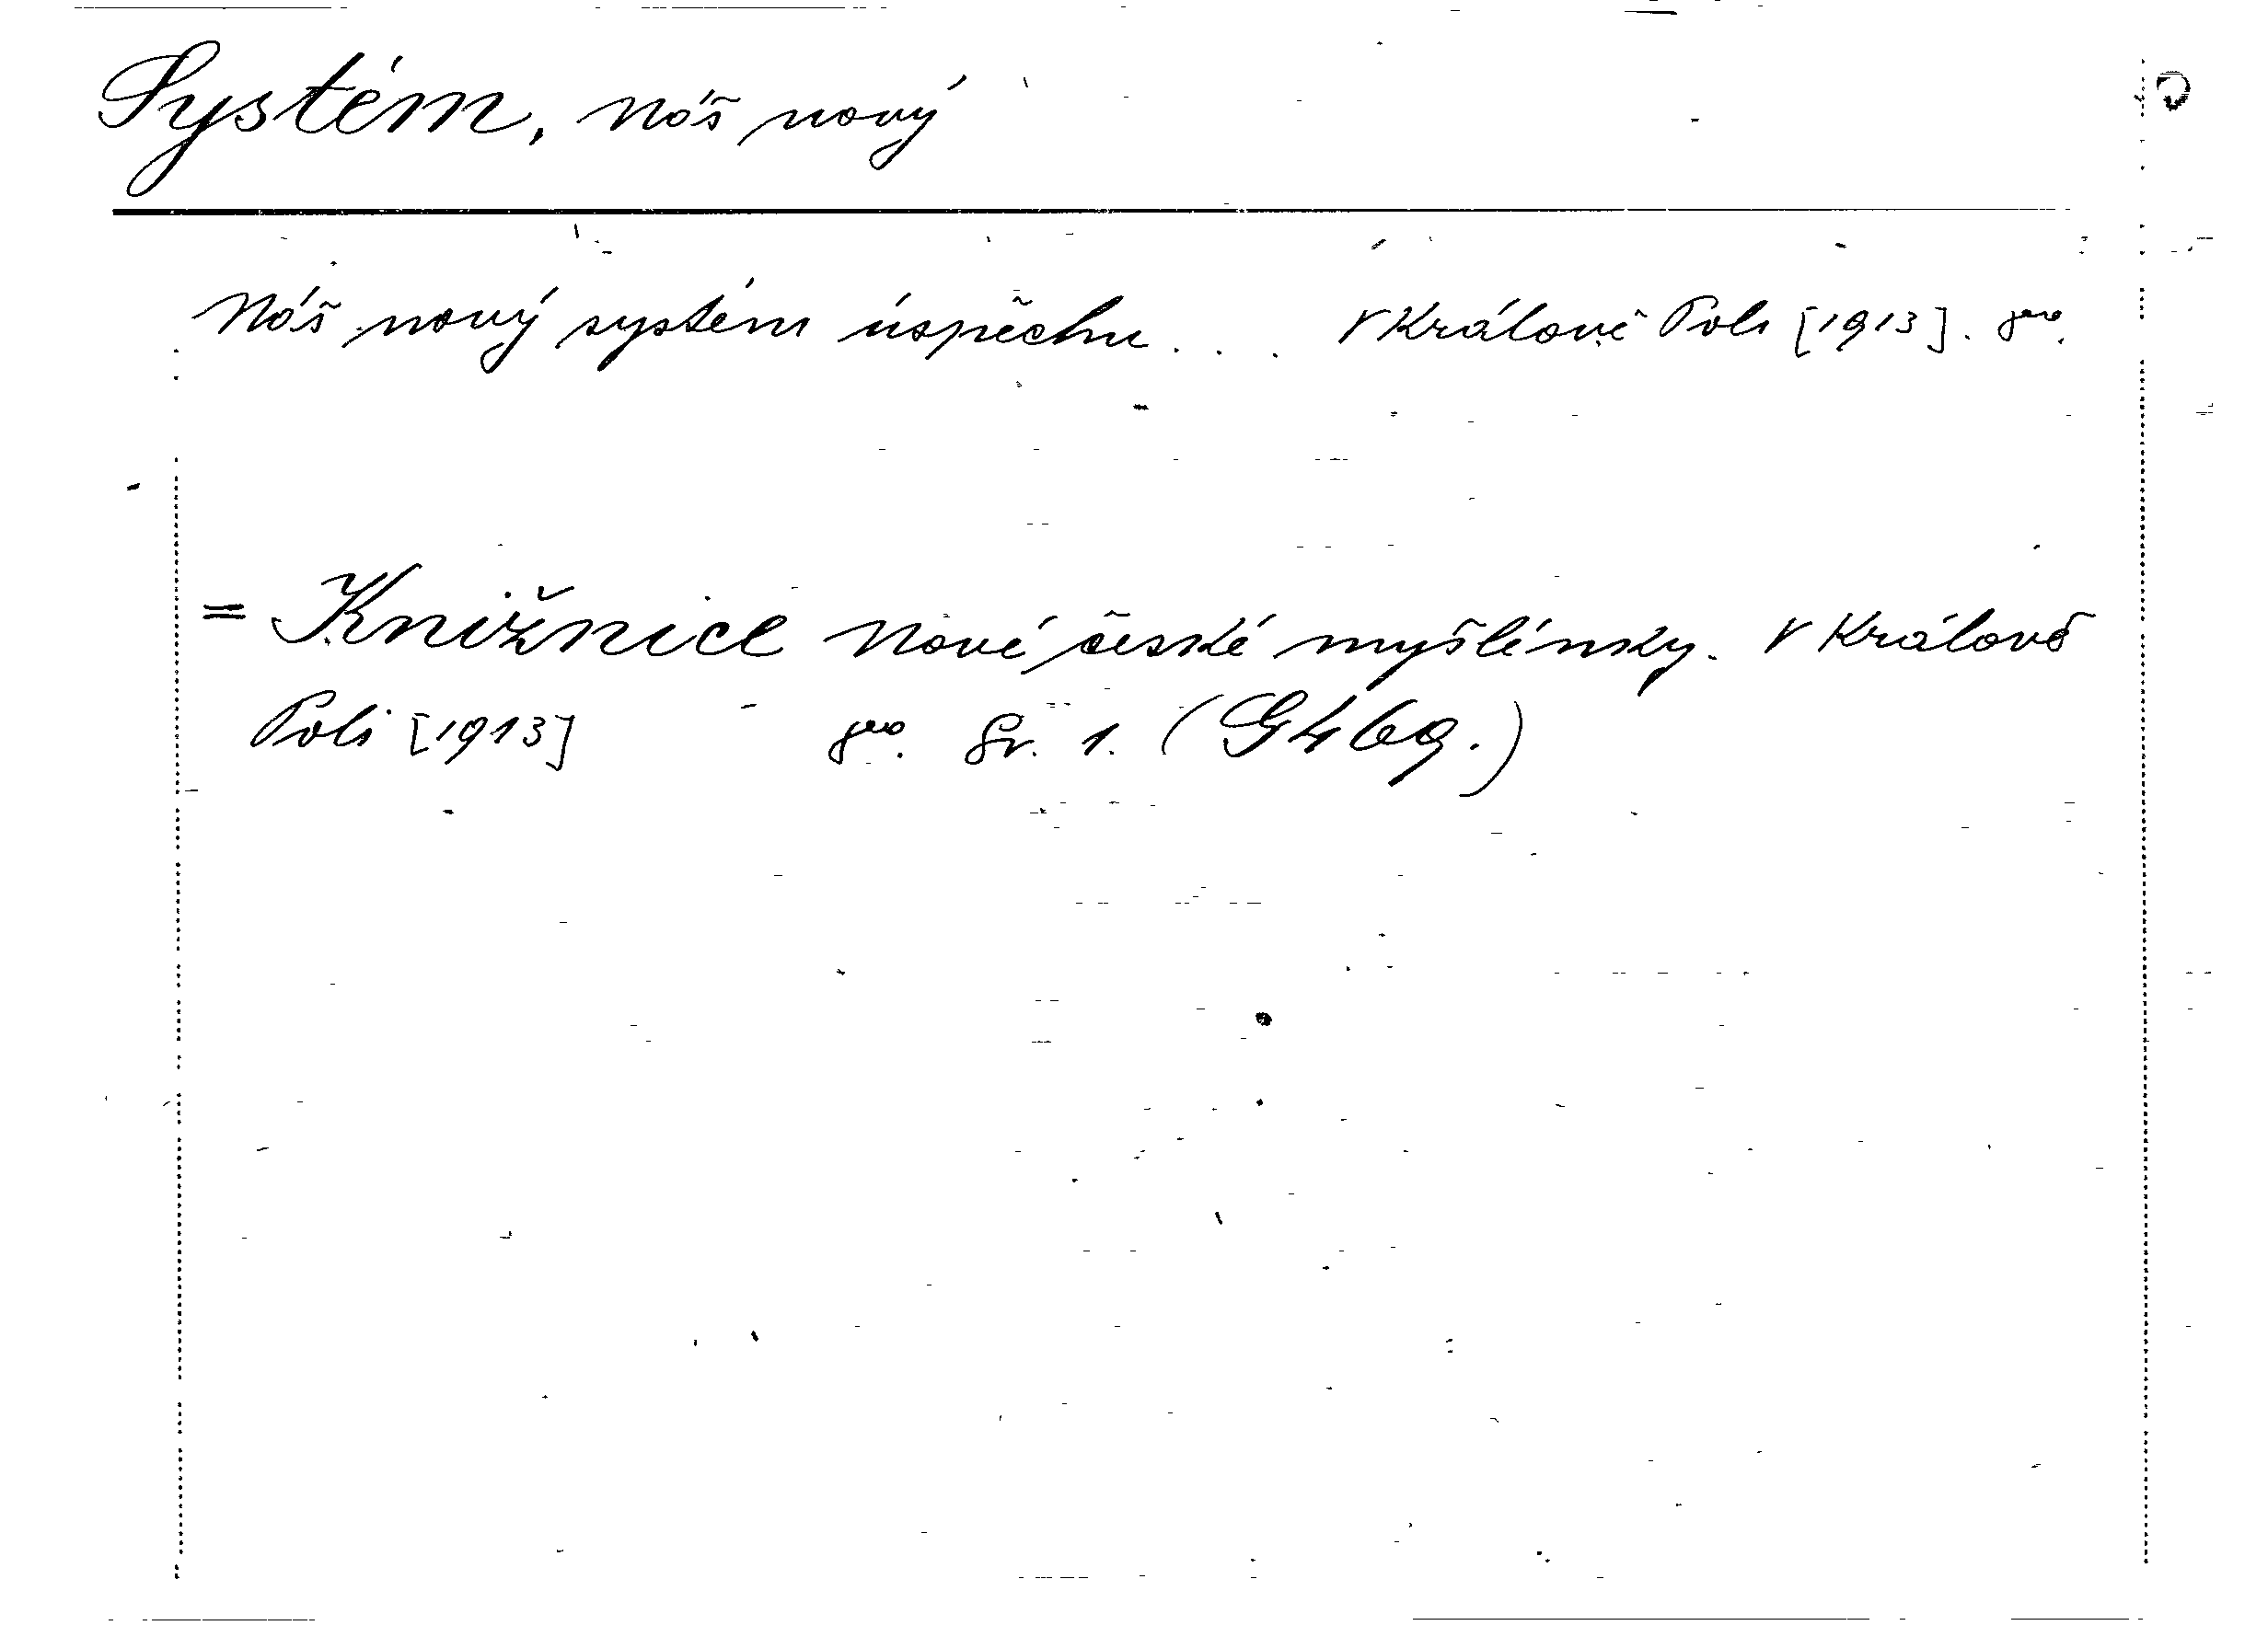 Systém, náš nový
Náš nový systém úspěchu... V Králově Poli [1913]. 8vo.
= Knižnice Nové české myšlénky. V Králově
Poli [1913] 8vo. Sv. 1. (G 469.)